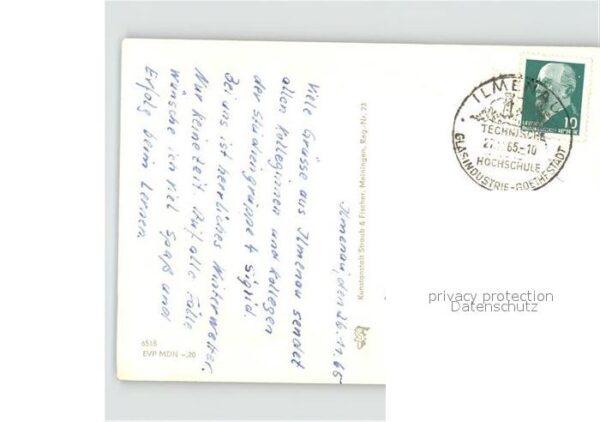 Ilmenau, den 26.11.65
Viele Grüsse aus Ilmenau sendet
allen Kolleginnen und Kollegen
der Studiengruppe 4 Sigrid.
Bei uns ist herrliches Winterwetter.
Nur keine Zeit. Auf alle Fälle
wünsche ich viel Spaß und
Erfolg beim Lernen.
Kunstanstalt Straub & Fischer, Meiningen, Reg.-Nr. 23
6518
EVP MDN -,20
ILMENAU
TECHNISCHE
65-10
HOCHSCHULE
GLASINDUSTRIE-GOETHESTADT
10
privacy protection
Datenschutz